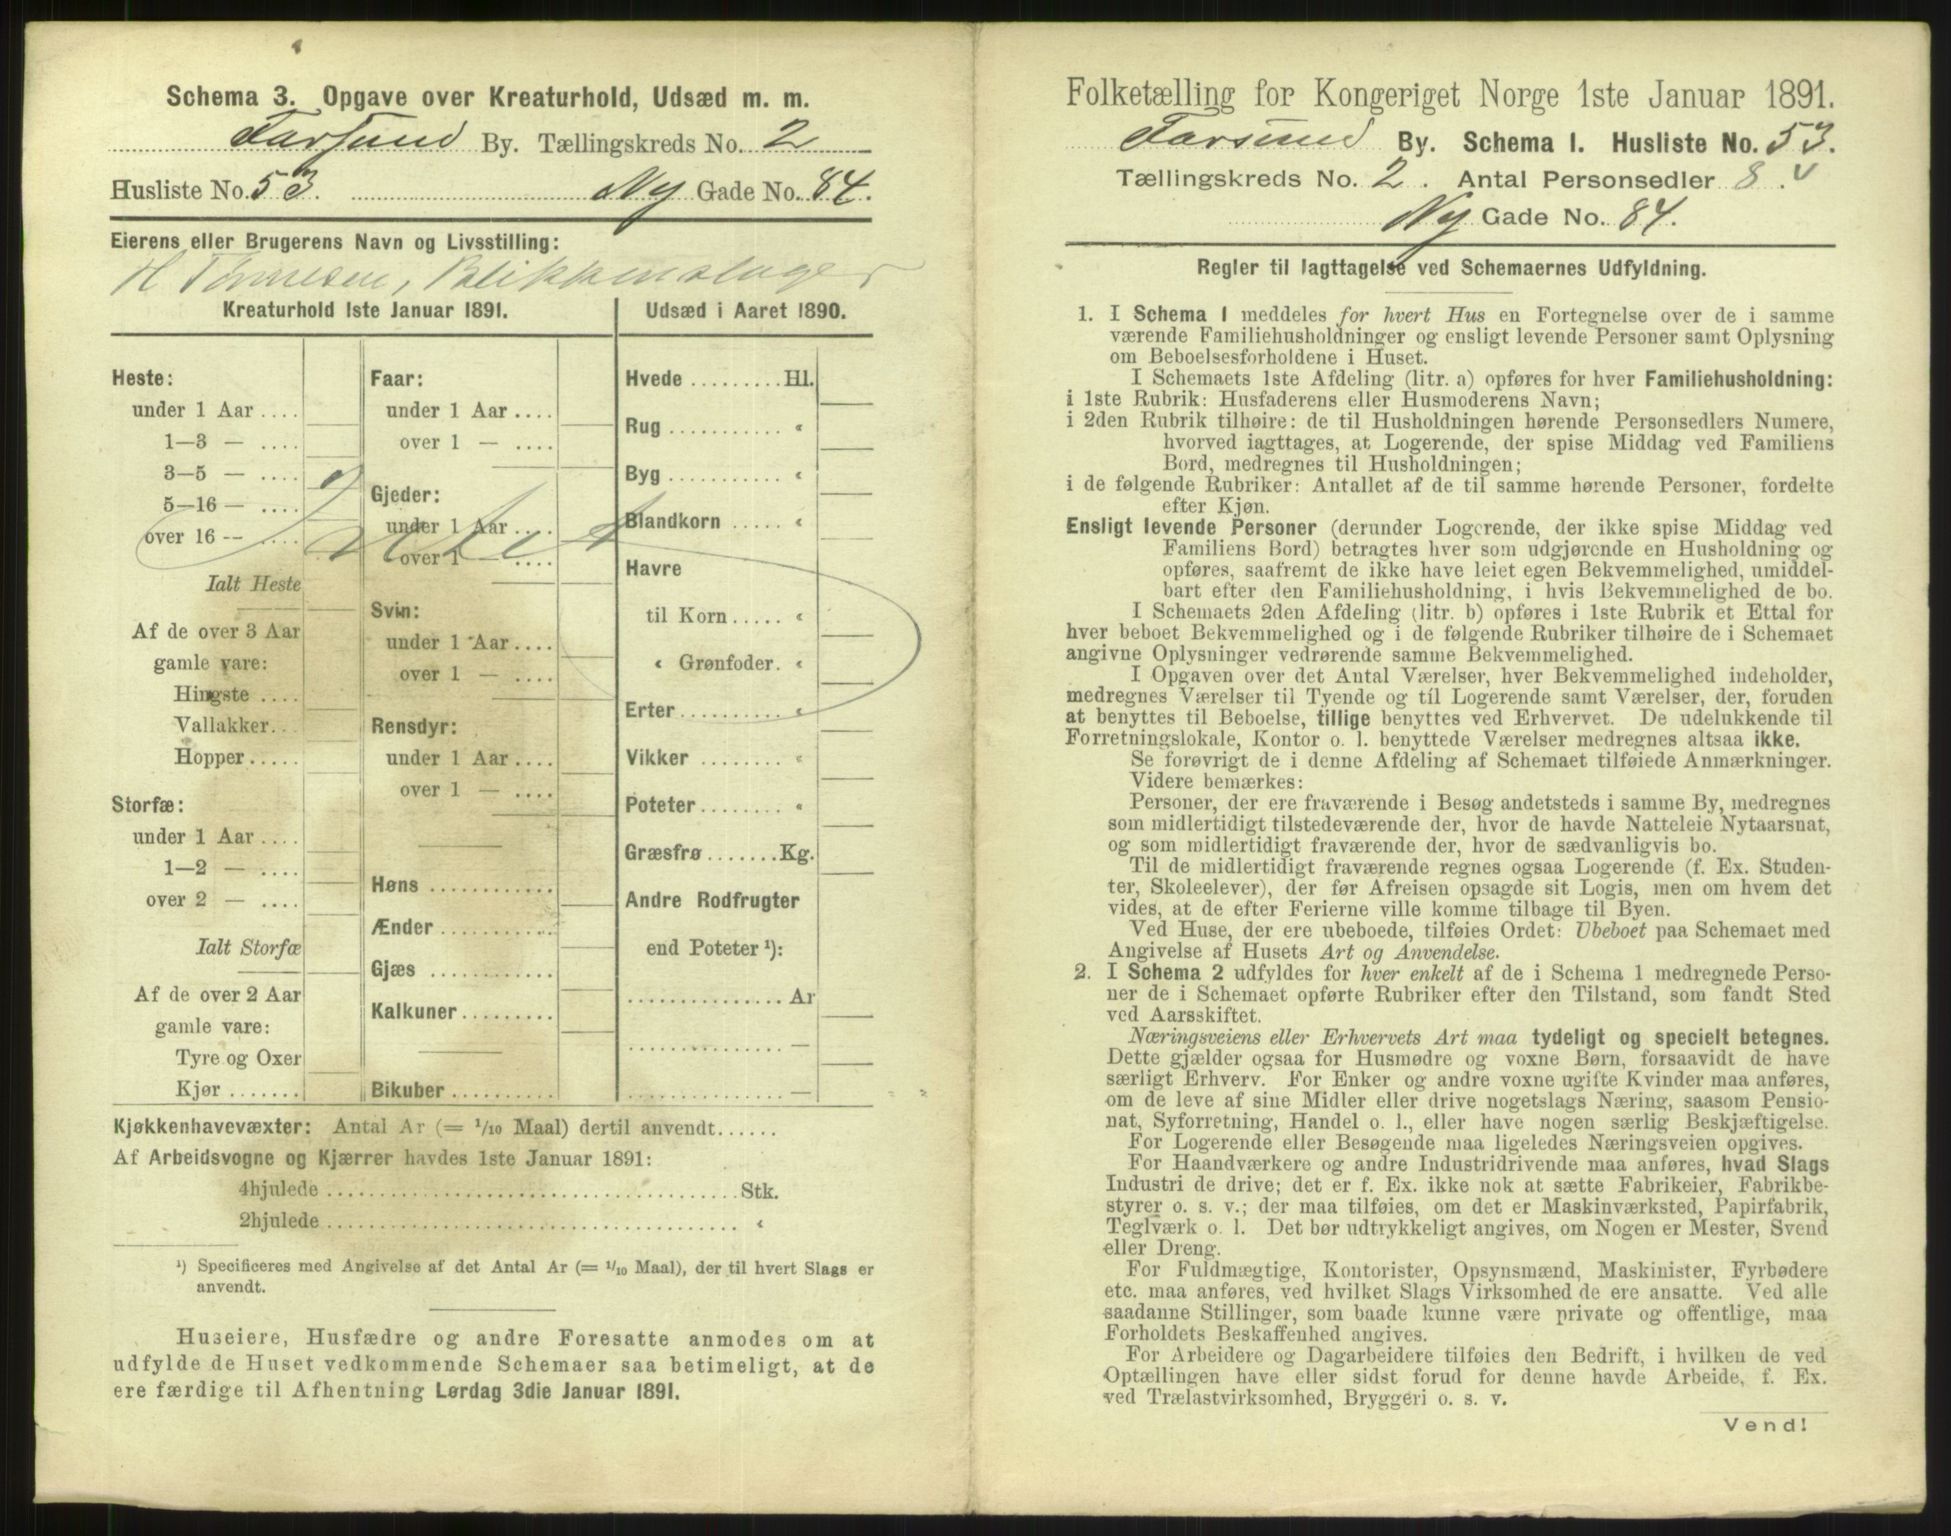 Schema 3. Opgave over Kreaturhold, Udsæd m. m.
Farsund By. Tællingskreds No. 2
Husliste No. 53. Ny Gade No. 84.
Eierens eller Brugerens Navn og Livsstilling:
H Tønnesen, Blikkenslager
Kreaturhold 1ste Januar 1891.
Heste:
under 1 Aar ....
1—3 — ....
3—5 — ....
5—16 — ....
over 16 — ....
Ialt Heste
Af de over 3 Aar
gamle vare:
Hingste ....
Vallakker...
Hopper.....
Storfæ:
under 1 Aar....
1—2 — ....
over 2 — ....
Ialt Storfæ
Af de over 2 Aar
gamle vare:
Tyre og Oxer
Kjør .......
Faar:
under 1 Aar ....
over 1 — ....
Gjeder:
under 1 Aar....
over 1 — ....
Svin:
under 1 Aar....
over 1 — ....
Rensdyr:
under 1 Aar....
over 1 — ....
Høns ............
Ænder ...........
Gjæs ............
Kalkuner.........
Bikuber ..........
Udsæd i Aaret 1890.
Hvede .........Hl.
Rug ........... «
Byg ........... «
Blandkorn ..... «
Havre
til Korn..... «
« Grønfoder. «
Erter.......... «
Vikker ........ «
Poteter........ «
Græsfrø.......Kg.
Andre Rodfrugter
end Poteter ¹):
...............Ar
............... —
............... —
Intet
Kjøkkenhavevæxter: Antal Ar (= 1/10 Maal) dertil anvendt......
Af Arbeidsvogne og Kjærrer havdes 1ste Januar 1891:
4hjulede ......................................Stk.
2hjulede ...................................... «
¹) Specificeres med Angivelse af det Antal Ar (= 1/10 Maal), der til hvert Slags er
anvendt.
Huseiere, Husfædre og andre Foresatte anmodes om at
udfylde de Huset vedkommende Schemaer saa betimeligt, at de
ere færdige til Afhentning Lørdag 3die Januar 1891.
Folketælling for Kongeriget Norge 1ste Januar 1891.
Farsund By. Schema I. Husliste No. 53.
Tællingskreds No. 2. Antal Personsedler 8.
Ny Gade No. 84.
Regler til Iagttagelse ved Schemaernes Udfyldning.
1. I Schema I meddeles for hvert Hus en Fortegnelse over de i samme
værende Familiehusholdninger og ensligt levende Personer samt Oplysning
om Beboelsesforholdene i Huset.
I Schemaets 1ste Afdeling (litr. a) opføres for hver Familiehusholdning:
i 1ste Rubrik: Husfaderens eller Husmoderens Navn;
i 2den Rubrik tilhøire: de til Husholdningen hørende Personsedlers Numere,
hvorved iagttages, at Logerende, der spise Middag ved Familiens
Bord, medregnes til Husholdningen;
i de følgende Rubriker: Antallet af de til samme hørende Personer, fordelte
efter Kjøn.
Ensligt levende Personer (derunder Logerende, der ikke spise Middag ved
Familiens Bord) betragtes hver som udgjørende en Husholdning og
opføres, saafremt de ikke have leiet egen Bekvemmelighed, umiddel-
bart efter den Familiehusholdning, i hvis Bekvemmelighed de bo.
I Schemaets 2den Afdeling (litr. b) opføres i 1ste Rubrik et Ettal for
hver beboet Bekvemmelighed og i de følgende Rubriker tilhøire de i Schemaet
angivne Oplysninger vedrørende samme Bekvemmelighed.
I Opgaven over det Antal Værelser, hver Bekvemmelighed indeholder,
medregnes Værelser til Tyende og til Logerende samt Værelser, der, foruden
at benyttes til Beboelse, tillige benyttes ved Erhvervet. De udelukkende til
Forretningslokale, Kontor o. l. benyttede Værelser medregnes altsaa ikke.
Se forøvrigt de i denne Afdeling af Schemaet tilføiede Anmærkninger.
Videre bemærkes:
Personer, der ere fraværende i Besøg andetsteds i samme By, medregnes
som midlertidigt tilstedeværende der, hvor de havde Natteleie Nytaarsnat,
og som midlertidigt fraværende der, hvor de sædvanligvis bo.
Til de midlertidigt fraværende regnes ogsaa Logerende (f. Ex. Studen-
ter, Skoleelever), der før Afreisen opsagde sit Logis, men om hvem det
vides, at de efter Ferierne ville komme tilbage til Byen.
Ved Huse, der ere ubeboede, tilføies Ordet: Ubeboet paa Schemaet med
Angivelse af Husets Art og Anvendelse.
2. I Schema 2 udfyldes for hver enkelt af de i Schema 1 medregnede Perso-
ner de i Schemaet opførte Rubriker efter den Tilstand, som fandt Sted
ved Aarsskiftet.
Næringsveiens eller Erhvervets Art maa tydeligt og specielt betegnes.
Dette gjælder ogsaa for Husmødre og voxne Børn, forsaavidt de have
særligt Erhverv. For Enker og andre voxne ugifte Kvinder maa anføres,
om de leve af sine Midler eller drive nogetslags Næring, saasom Pensio-
nat, Syforretning, Handel o. l., eller have nogen særlig Beskjæftigelse.
For Logerende eller Besøgende maa ligeledes Næringsveien opgives.
For Haandværkere og andre Industridrivende maa anføres, hvad Slags
Industri de drive; det er f. Ex. ikke nok at sætte Fabrikeier, Fabrikbe-
styrer o. s. v.; der maa tilføies, om det er Maskinværksted, Papirfabrik,
Teglværk o. l. Det bør udtrykkeligt angives, om Nogen er Mester, Svend
eller Dreng.
For Fuldmægtige, Kontorister, Opsynsmænd, Maskinister, Fyrbødere
etc. maa anføres, ved hvilket Slags Virksomhed de ere ansatte. Ved alle
saadanne Stillinger, som baade kunne være private og offentlige, maa
Forholdets Beskaffenhed angives.
For Arbeidere og Dagarbeidere tilføies den Bedrift, i hvilken de ved
Optællingen have eller sidst forud for denne havde Arbeide, f. Ex.
ved Trælastvirksomhed, Bryggeri o. s. v.
Vend!